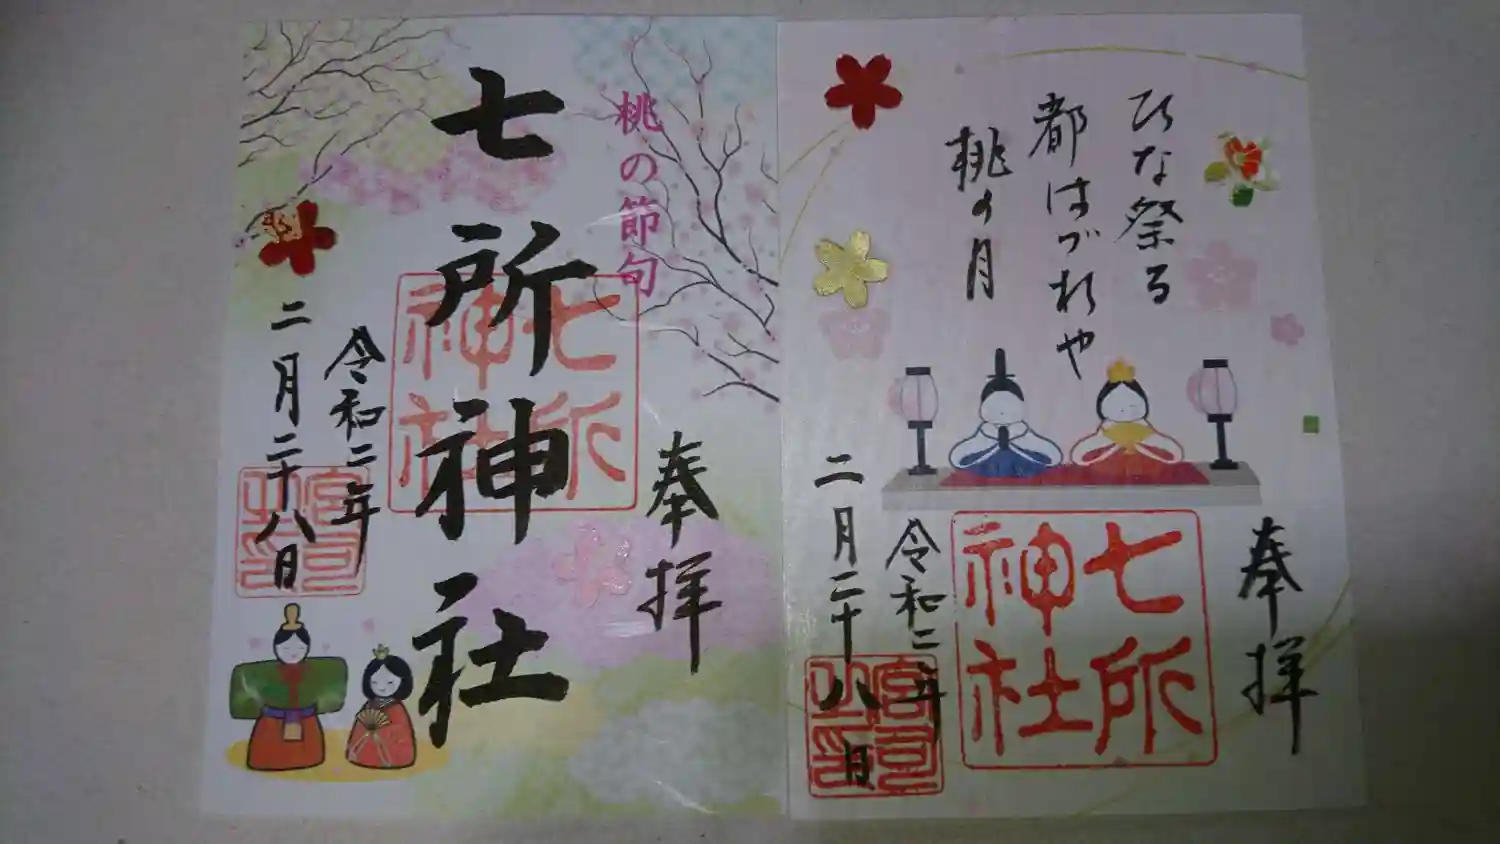 奉拝
ひな祭る
都はづれや
桃の月
七所
神社
宮司
之印
令和二年
二月二十八日
奉拝
桃の節句
七所神社
七所
神社
宮司
之印
令和二年
二月二十八日